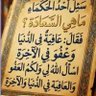 سُئِلَ أَحَدُ الحُكَمَاءِ
مَا هِيَ السَّعَادَةُ ؟
فَقَالَ: عَافِيَةٌ فِي الدُّنْيَا
وَعَفْوٌ فِي الآخِرَةِ
اسْأَلُ اللهَ لِي وَلَكُمُ العَفْوَ
وَالعَافِيَةَ فِي الدُّنْيَا وَالآخِرَةِ